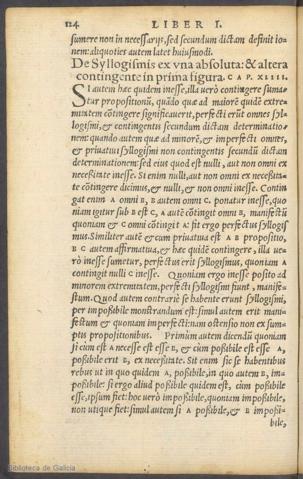 124. LIBER I.
sumere non in necessarijs, sed secundum dictam definit io-
nem: aliquoties autem latet huiusmodi.
De Syllogismis ex vna absoluta: & altera
contingente in prima figura. CAP. XIIII.
SI autem hæc quidem inesse, illa uerò contingere suma-
tur propositionũ, quãdo quæ ad maiorẽ quidẽ extre-
mitatem cõtingere significauerit, perfecti erũt omnes syl-
logismi, & contingentis secundum dictam determinatio-
nem: quando autem quæ ad minorẽ, & imperfecti omnes,
& priuatiui syllogismi non contingentis secundũ dictam
determinationem: sed eius quod est nulli, aut non omni ex
necessitate inesse. Si enim nulli, aut non omni ex necessita-
te cõtingere dicimus, & nulli, & non omni inesse. Contin
gat enim A omni B, B autem omni C. ponatur inesse, quo
niam igitur sub B est C, A autẽ cõtingit omni B, manifestũ
quoniam & C omni cõtingit A: fit ergo perfectus syllogis
mus. Similiter autẽ & cum priuatiua est A B propositio,
B C autem affirmatiua, & hæc quidẽ contingere, illa ue-
rò inesse sumetur, perfectus erit syllogismus, quoniam A
contingit nulli C inesse. Quoniam ergo inesse posito ad
minorem extremitatem, perfecti syllogismi fiunt, manife-
stum. Quod autem contrariè se habente erunt syllogismi,
per impossibile monstrandum est: simul autem erit mani-
festum & quoniam imperfecti: nam ostensio non ex sum-
ptis propositionibus. Primùm autem dicendũ quoniam
si cùm est A necesse est esse B, & cùm possibile est esse A,
possibile erit B, ex necessitate. Sit enim sic se habentibus
rebus ut in quo quidem A, possibile, in quo autem B, im-
possibile: si ergo aliud possibile quidem est, cùm possibile
esse, ipsum fiet: hoc uerò impossibile, quoniam impossibile,
non utique fiet: simul autem si A possibile, & B impossi-
bile,
Biblioteca de Galicia